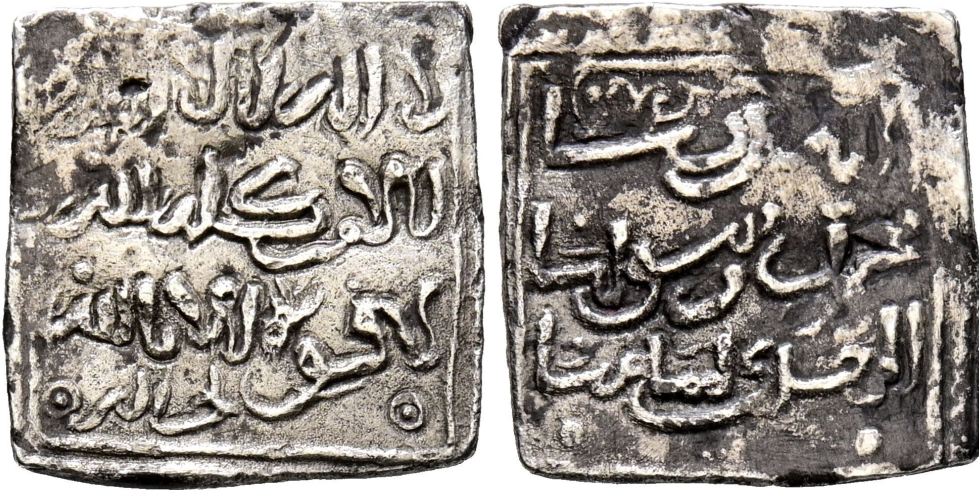 لا اله الا الله
الامر كله لله
لا قوة الا بالله
الله ربنا
محمد رسولنا
المهدى امامنا